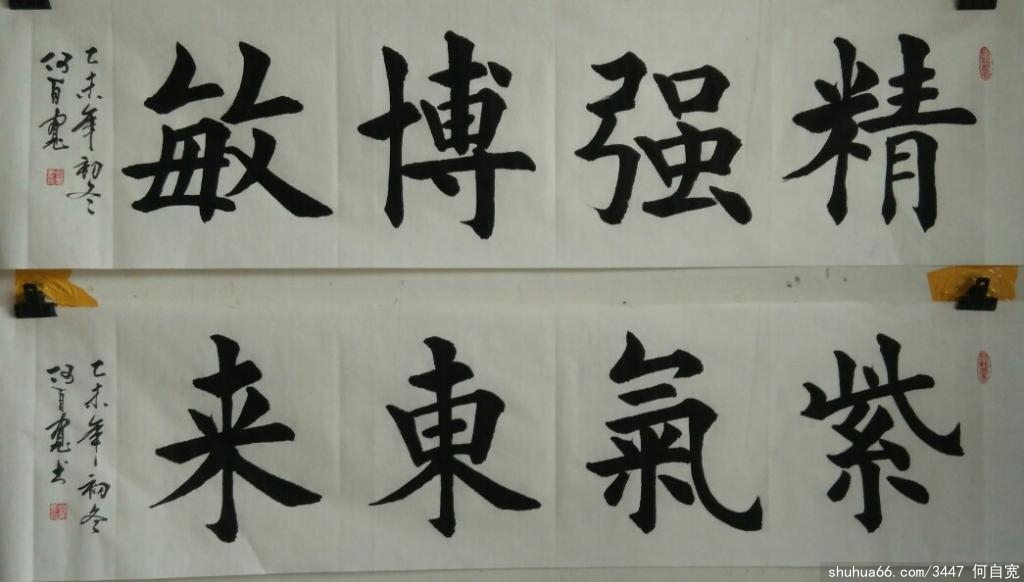 精强博敏
乙未年初冬
何自寬
紫氣東来
乙未年初冬
何自寬书
shuhua66.com/3447 何自宽